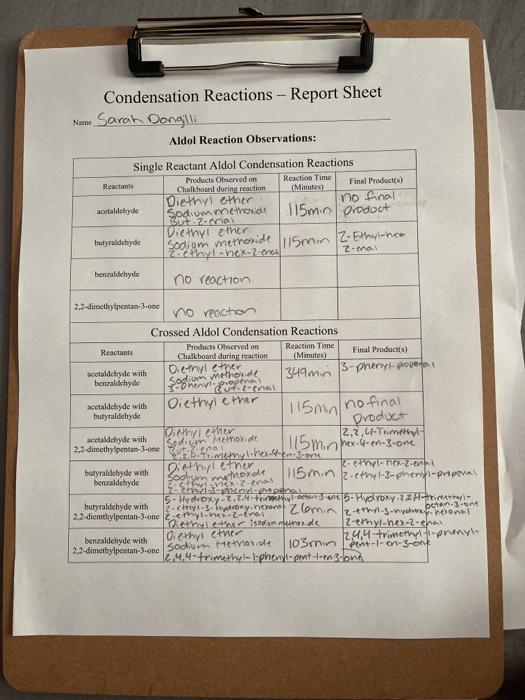 Condensation Reactions – Report Sheet
Name Sarah
Aldol Reaction Observations:
Single Reactant Aldol Condensation Reactions
Reactants
Products Observed on
Chalkboard during reaction
Reaction Time
(Minutes)
Final Product(s)
acetaldehyde
Diethyl ether
Sodium methoxide
But-2-enal
115min
no final
product
butyraldehyde
Diethyl ether
Sodium methoxide
2-ethyl-hex-2-enal
115min
2-Ethyl-hex
2-enal
benzaldehyde
no reaction
2,2-dimethylpentan-3-one
no reaction
Crossed Aldol Condensation Reactions
Reactants
Products Observed on
Chalkboard during reaction
Reaction Time
(Minutes)
Final Product(s)
acetaldehyde with
benzaldehyde
Diethyl ether
Sodium methoxide
3-Phenyl-propenal
But-2-enal
349min
3-phenyl-propenal
acetaldehyde with
butyraldehyde
Diethyl ether
115min
no final
product
acetaldehyde with
2,2-dimethylpentan-3-one
Diethyl ether
Sodium Methoxide
But-2-enal
2,2,4-Trimethyl-hex-4-en-3-one
115min
2,2,4-Trimethyl-
hex-4-en-3-one
butyraldehyde with
benzaldehyde
Diethyl ether
Sodium methoxide
2-ethyl-hex-2-enal
2-ethyl-3-phenyl-propenal
115min
2-ethyl-hex-2-enal
2-ethyl-3-phenyl-propenal
butyraldehyde with
2,2-dimethylpentan-3-one
5-Hydroxy-2,2,4-trimethyl octan-3-one
2-ethyl-3-hydroxy-hexanal
2-ethyl-hex-2-enal
Diethyl ether Isodium methoxide
26min
5-Hydroxy-2,2,4-trimethyl-
octan-3-one
2-ethyl-3-hydroxy-hexanal
2-ethyl-hex-2-enal
benzaldehyde with
2,2-dimethylpentan-3-one
Diethyl ether
Sodium Methoxide
2,4,4-trimethyl-1-phenyl-pent-1-en-3-one
103min
2,4,4-trimethyl-1-phenyl-
pent-1-en-3-one